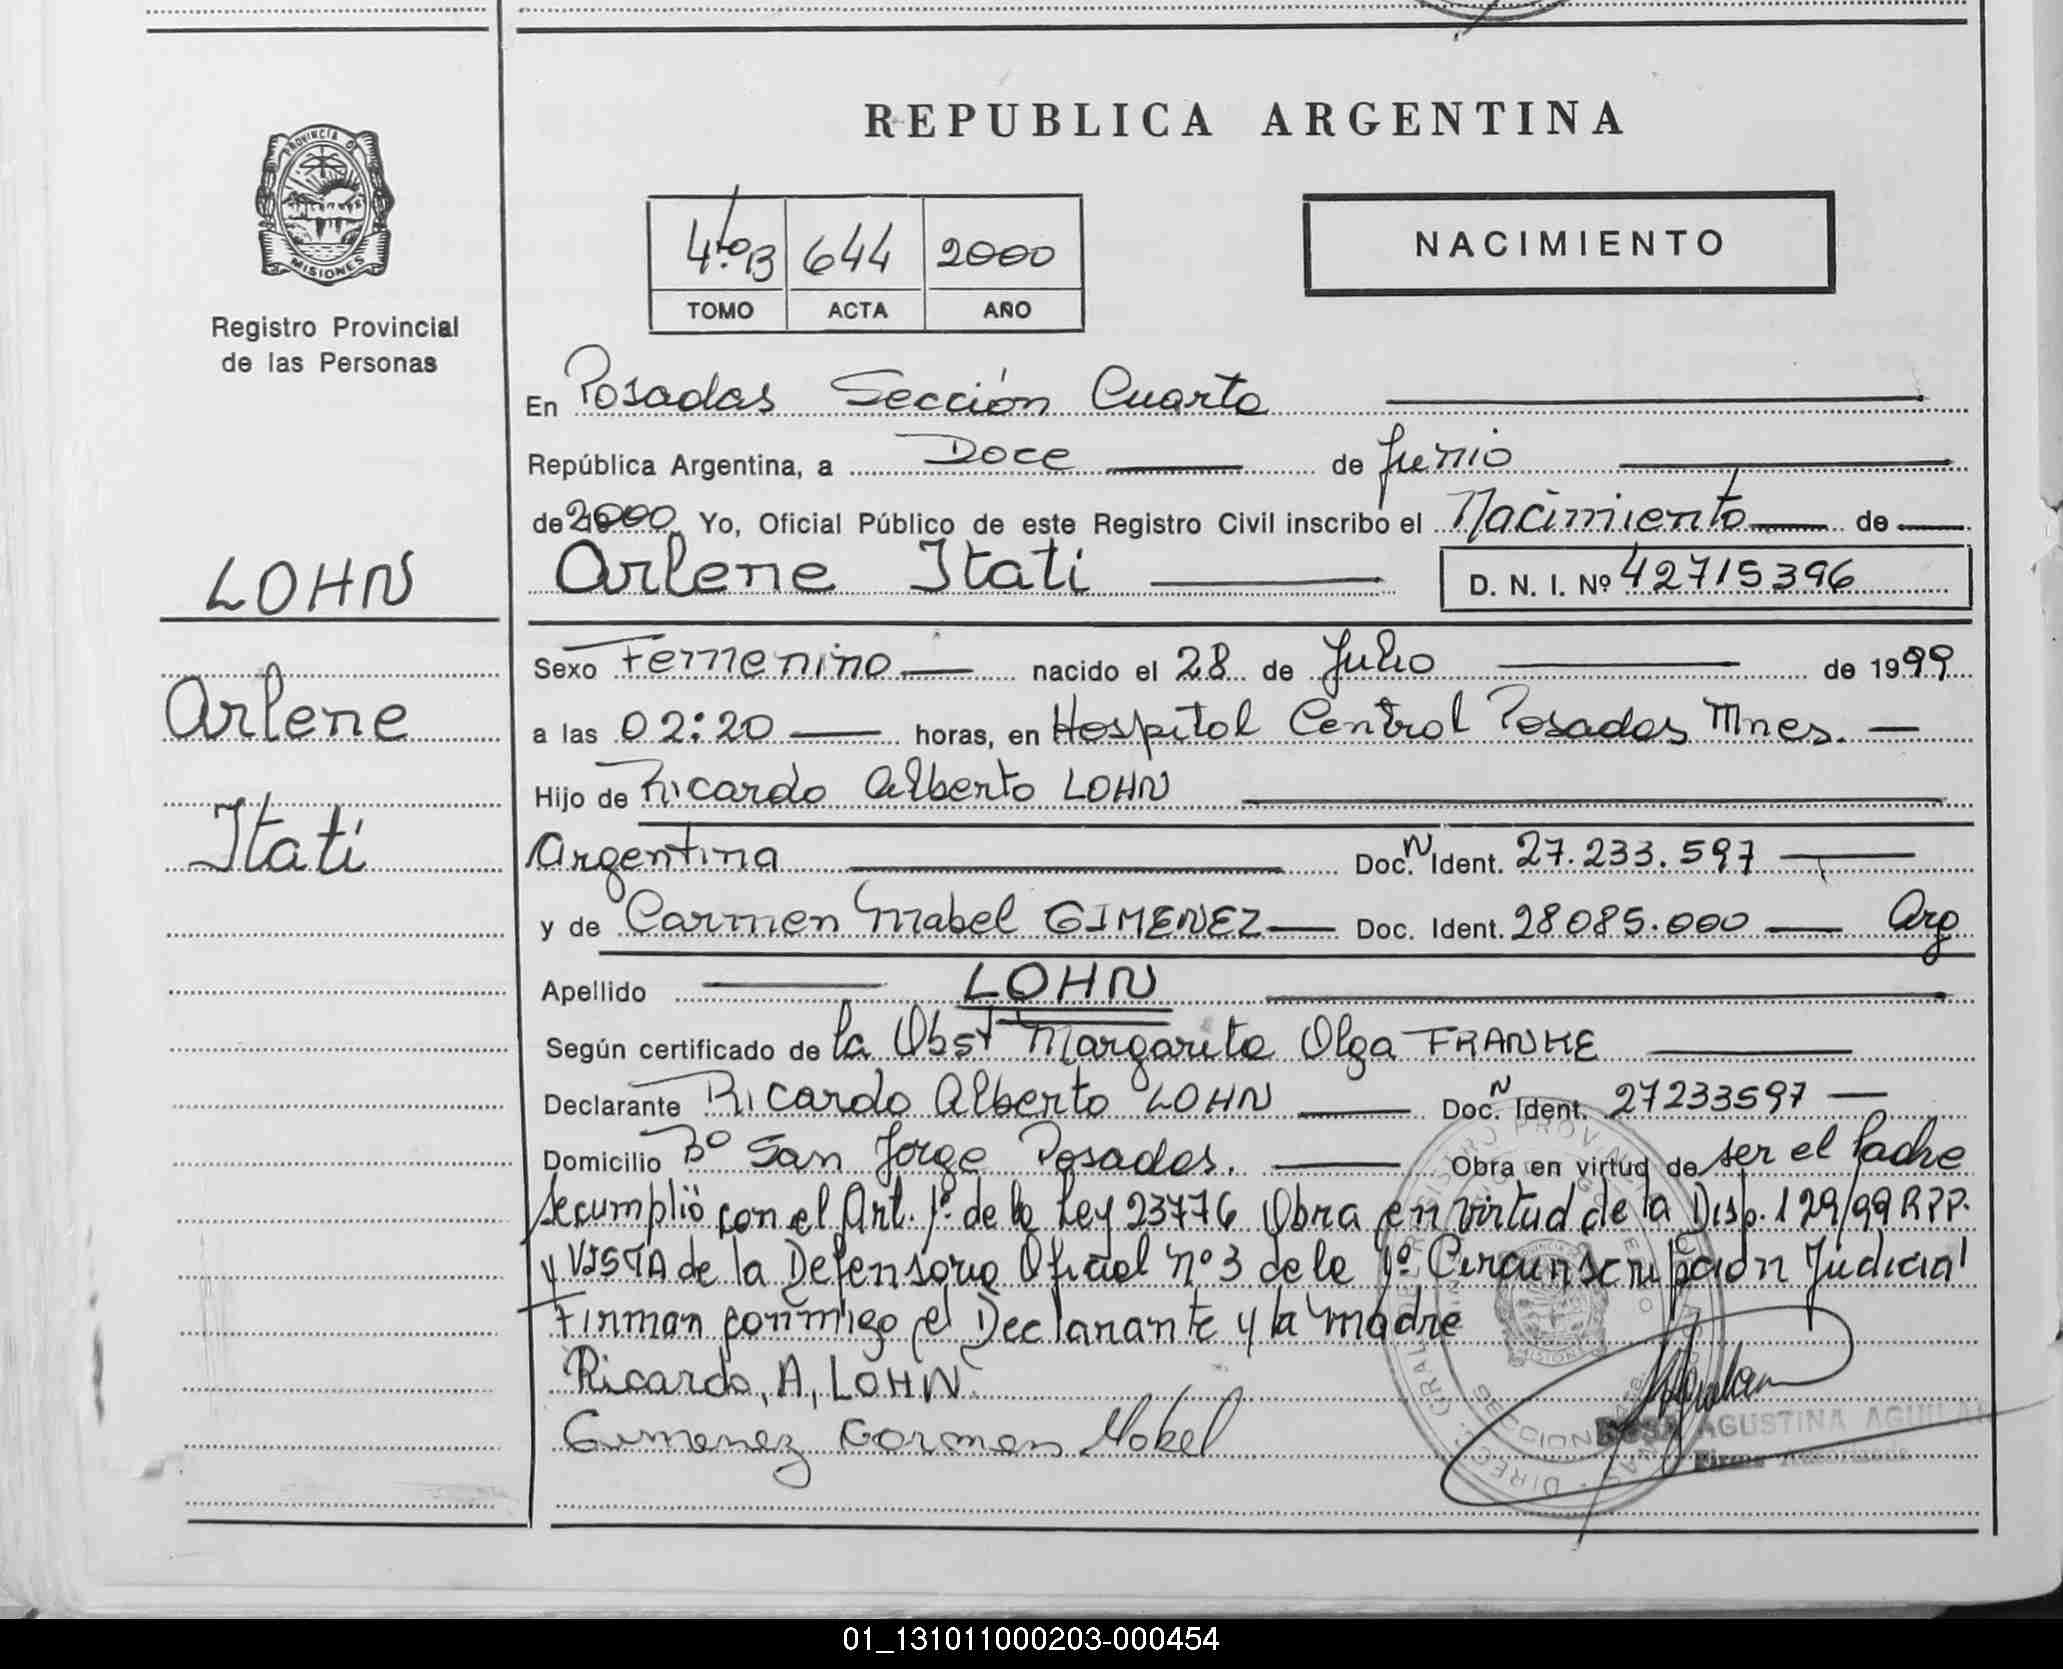 REPUBLICA ARGENTINA
PROVINCIA DE
MISIONES
Registro Provincial
de las Personas
4to B 644 2000
TOMO ACTA AÑO
NACIMIENTO
En Posadas Sección Cuarta
República Argentina, a Doce de Junio
de 2000 Yo, Oficial Público de este Registro Civil inscribo el Nacimiento de
LOHN
Arlene Itati
D. N. I. Nº 42715396
Arlene
Itati
Sexo Femenino nacido el 28 de Julio de 1999
a las 02:20 horas, en Hospital Central Posadas Mnes.
Hijo de Ricardo Alberto LOHN
Argentina Doc. N Ident. 27.233.597
y de Carmen Mabel GIMENEZ Doc. Ident. 28085.000 Arg
Apellido LOHN
Según certificado de la Obst Margarita Olga FRANKE
Declarante Ricardo Alberto LOHN Doc. N Ident. 27233597
Domicilio Bº San Jorge Posadas. Obra en virtud de ser el Padre
Se cumplió con el Art. 1º de la Ley 23776 Obra en virtud de la Disp. 129/99 RPP.
y VISTA de la Defensoria Oficial nº 3 de la 1º Circunscripción Judicial
Firman conmigo el Declarante y la madre
Ricardo, A, LOHN
Gimenez Carmen Mabel
ROSA AGUSTINA AGUILAR
Firma Autorizada
01_131011000203-000454